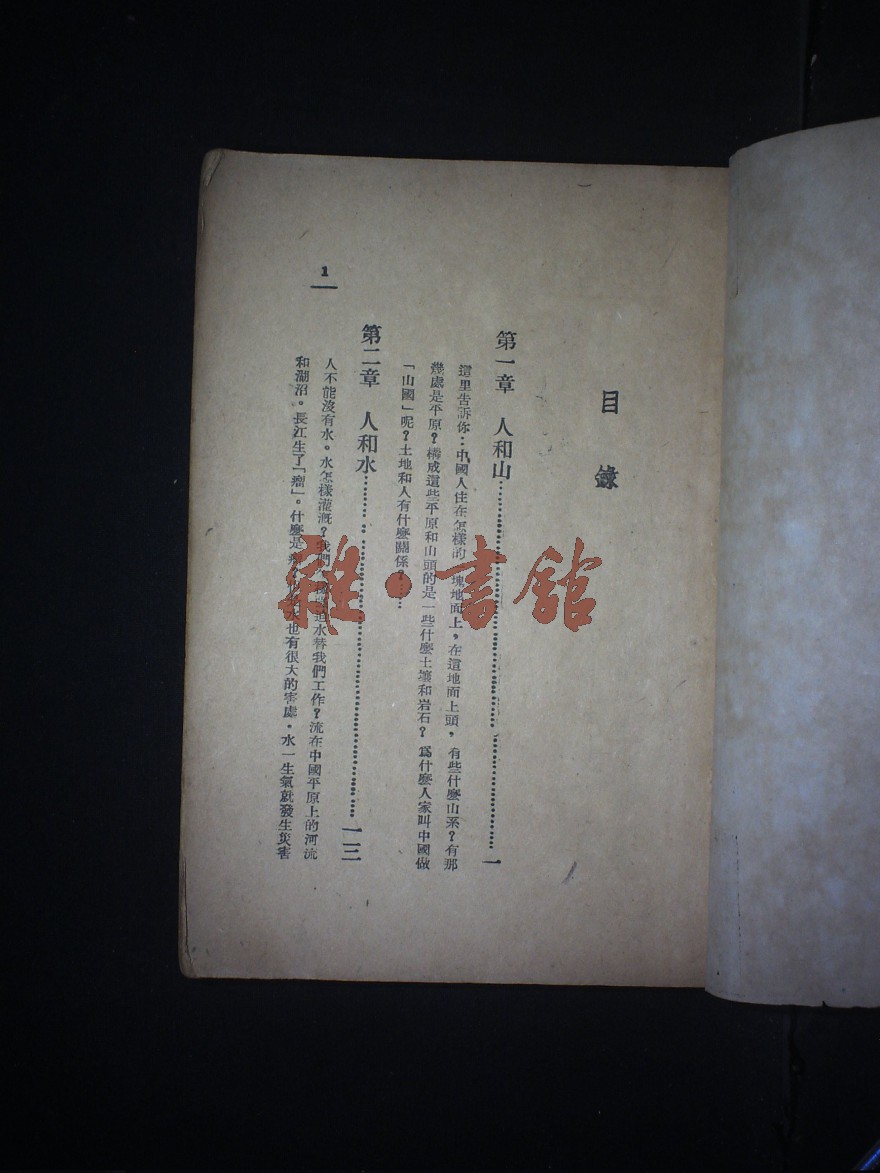 目錄
第一章 人和山……一
這里告訴你：中國人住在怎樣的一塊地面上，在這地面上頭，有些什麼山系？有那
幾處是平原？構成這些平原和山頭的是一些什麼土壤和岩石？爲什麼人家叫中國做
「山國」呢？土地和人有什麼關係？……
第二章 人和水……一三
人不能沒有水。水怎樣灌漑？我們 水替我們工作？流在中國平原上的河流
和湖沼。長江生了「瘤」。什麼是 水也有很大的害處，水一生氣就發生災害
1
雜·書館